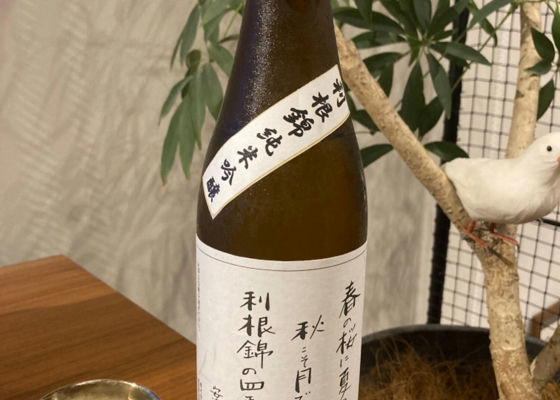 利根錦純米吟醸
春の桜に夏
秋こそ月
利根錦の四
安